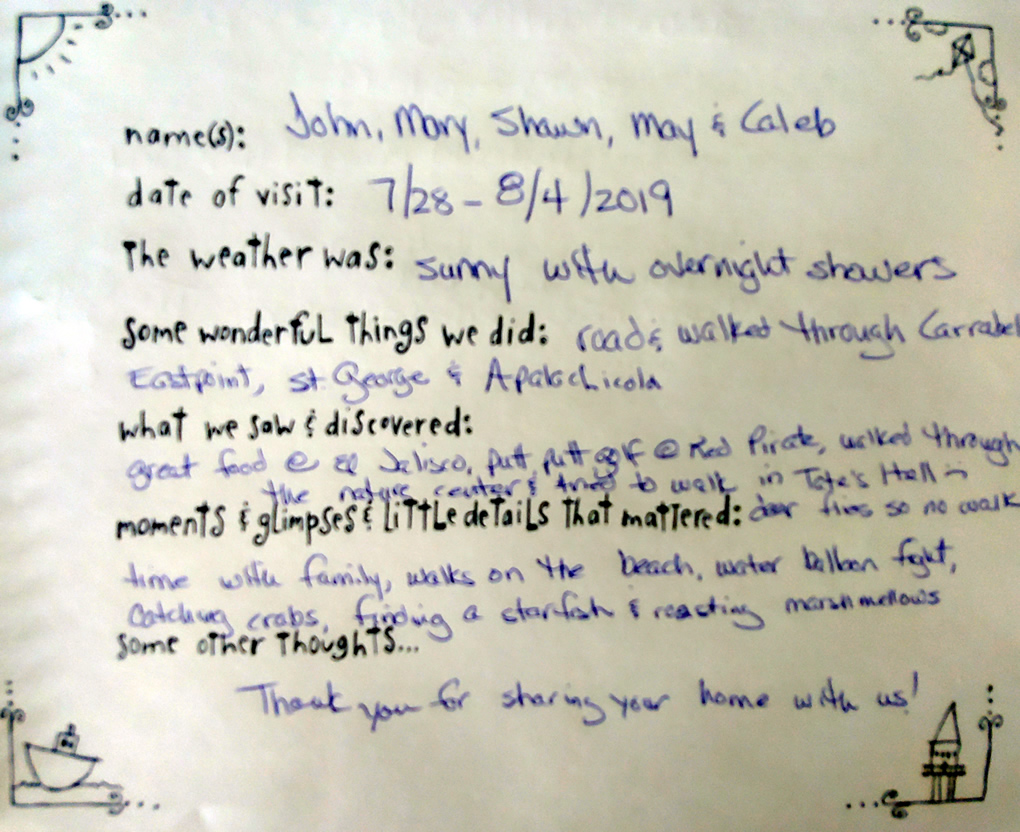 name(s): John, Mary, Shawn, May & Caleb
date of visit: 7/28 - 8/4/2019
The weather was: sunny with overnight showers
some wonderful things we did: road & walked through Carrabel
Eastpoint, st. George & Apalachicola
what we saw & discovered:
great food @ El Jalisco, putt putt golf @ Red Pirate, walked through
the nature center & tried to walk in Tate's Hell -
moments & glimpses & little details that mattered: deer flies so no walk
time with family, walks on the beach, water balloon fight,
Catching crabs, finding a starfish & roasting marshmellows
some other thoughts...
Thank you for sharing your home with us!